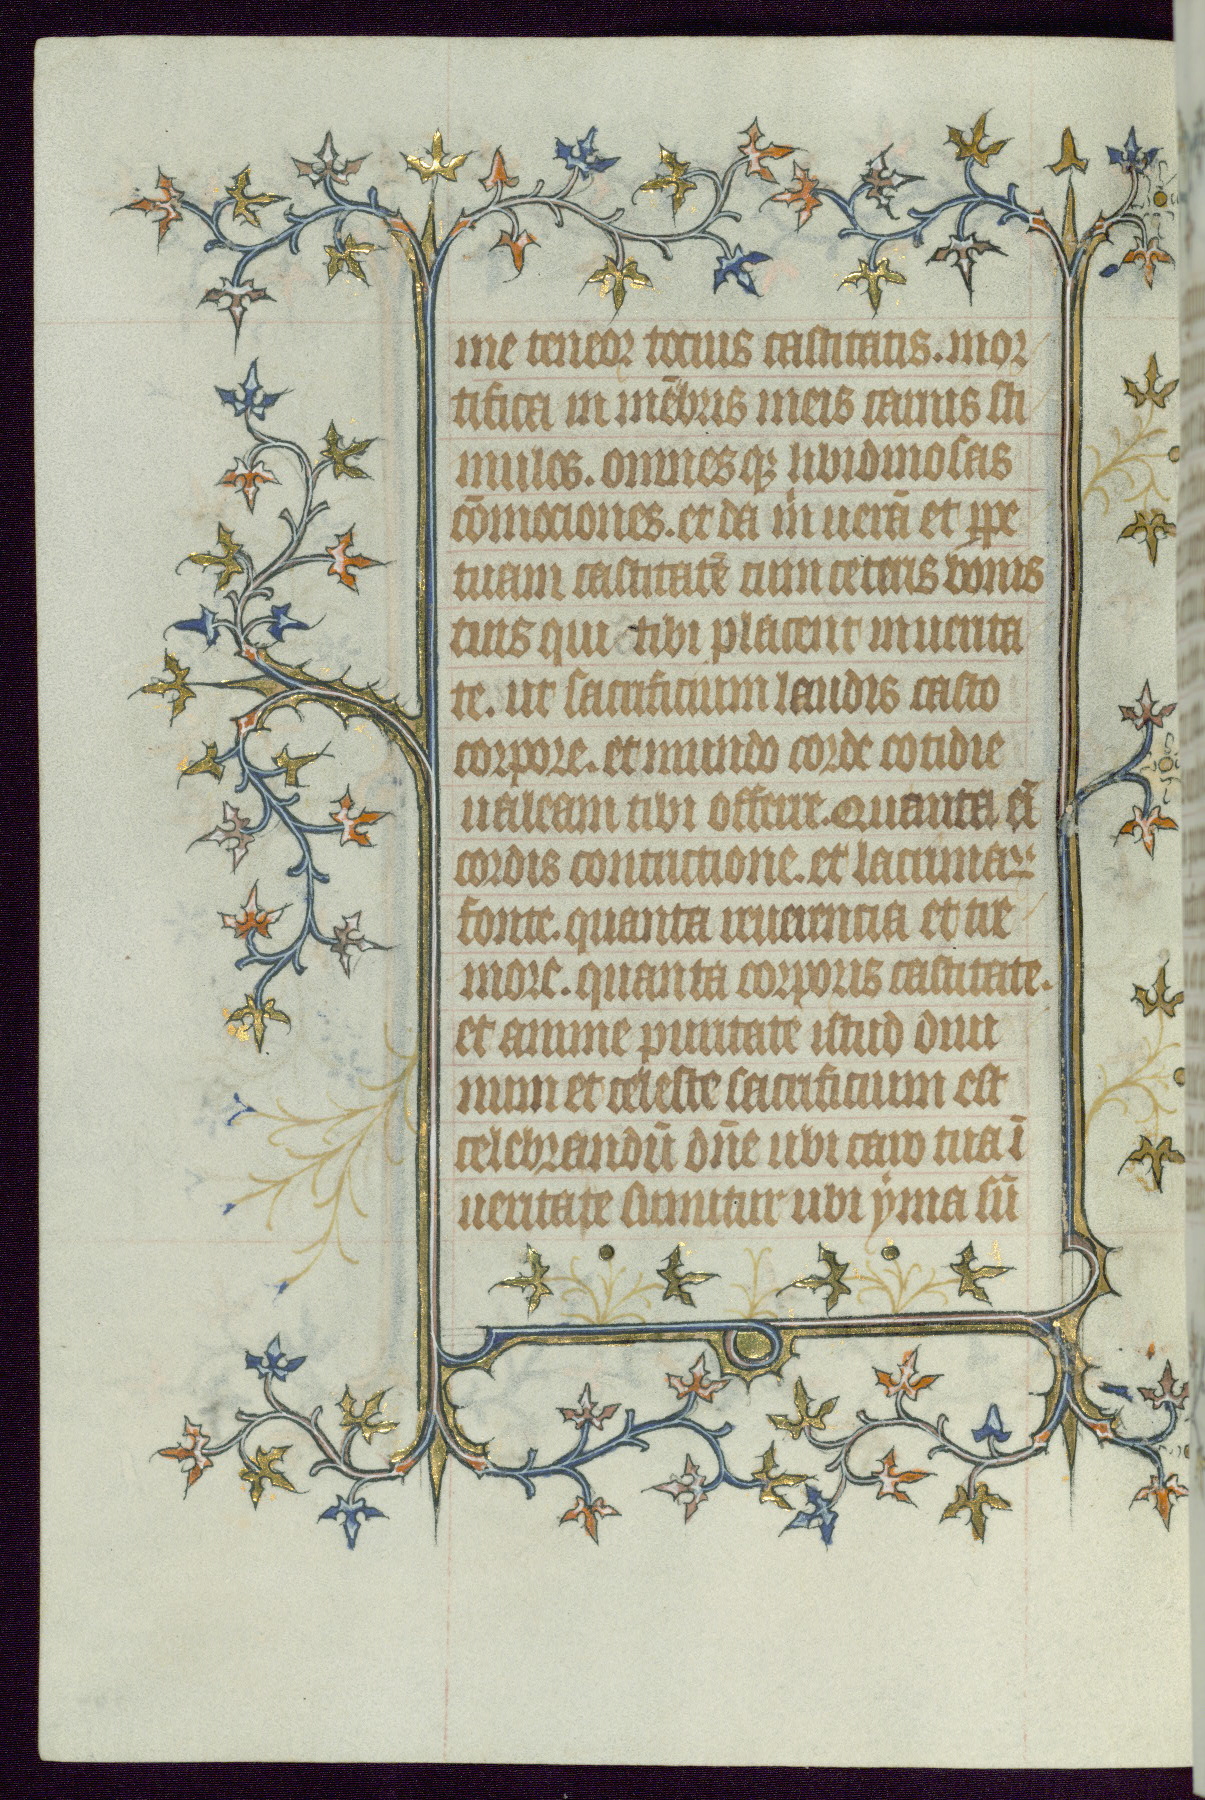 me teneor tocius castitatis. mor
tifica in mēbris meis carnis sti
mulos. omnesqꝫ libidinosas
cōmociones. et da m̍ uerā et ꝑpe
tuam castitatē cum ceteris bonis
tuis qui tibi placent in uerita
te. ut sacrificium laudis casto
corpore. et mundo corde cotidie
ualeam tibi offerre. Quanta eī
cordis contrictione. et lacrimaꝝ
fonte. quanta reuerencia et tre
more. quanta corporis castitate.
et anime puritate istud diui
num et celeste sacrificium est
celebrandū dn̄e ubi caro tua ī
ueritate sumitur ubi yma sū